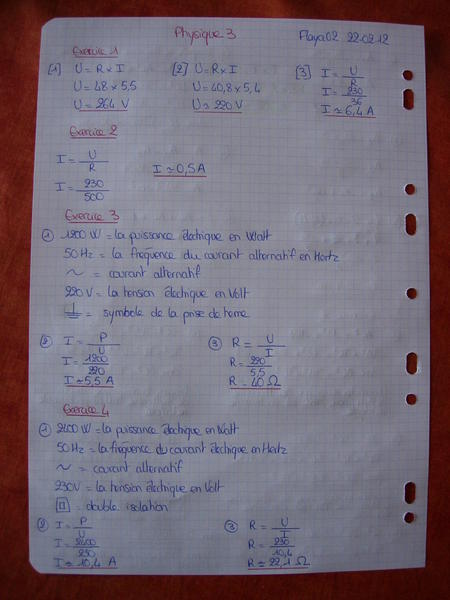 Physique 3
Flaya02 22.02.12
Exercice 1
[1] U = R × I
U = 48 × 5,5
U = 264 V
[2] U = R × I
U = 40,8 × 5,4
U ≈ 220 V
[3] I = U / R
I = 230 / 36
I ≈ 6,4 A
Exercice 2
I = U / R
I = 230 / 500
I ≈ 0,5 A
Exercice 3
① 1200 W = la puissance électrique en Watt
50 Hz = la fréquence du courant alternatif en Hertz
~ = courant alternatif
220 V = la tension électrique en Volt
⏚ = symbole de la prise de terre
② I = P / U
I = 1200 / 220
I ≈ 5,5 A
③ R = U / I
R = 220 / 5,5
R = 40 Ω
Exercice 4
① 2400 W = la puissance électrique en Watt
50 Hz = la fréquence du courant électrique en Hertz
~ = courant alternatif
230 V = la tension électrique en Volt
⧈ = double isolation
② I = P / U
I = 2400 / 230
I ≈ 10,4 A
③ R = U / I
R = 230 / 10,4
R ≈ 22,1 Ω